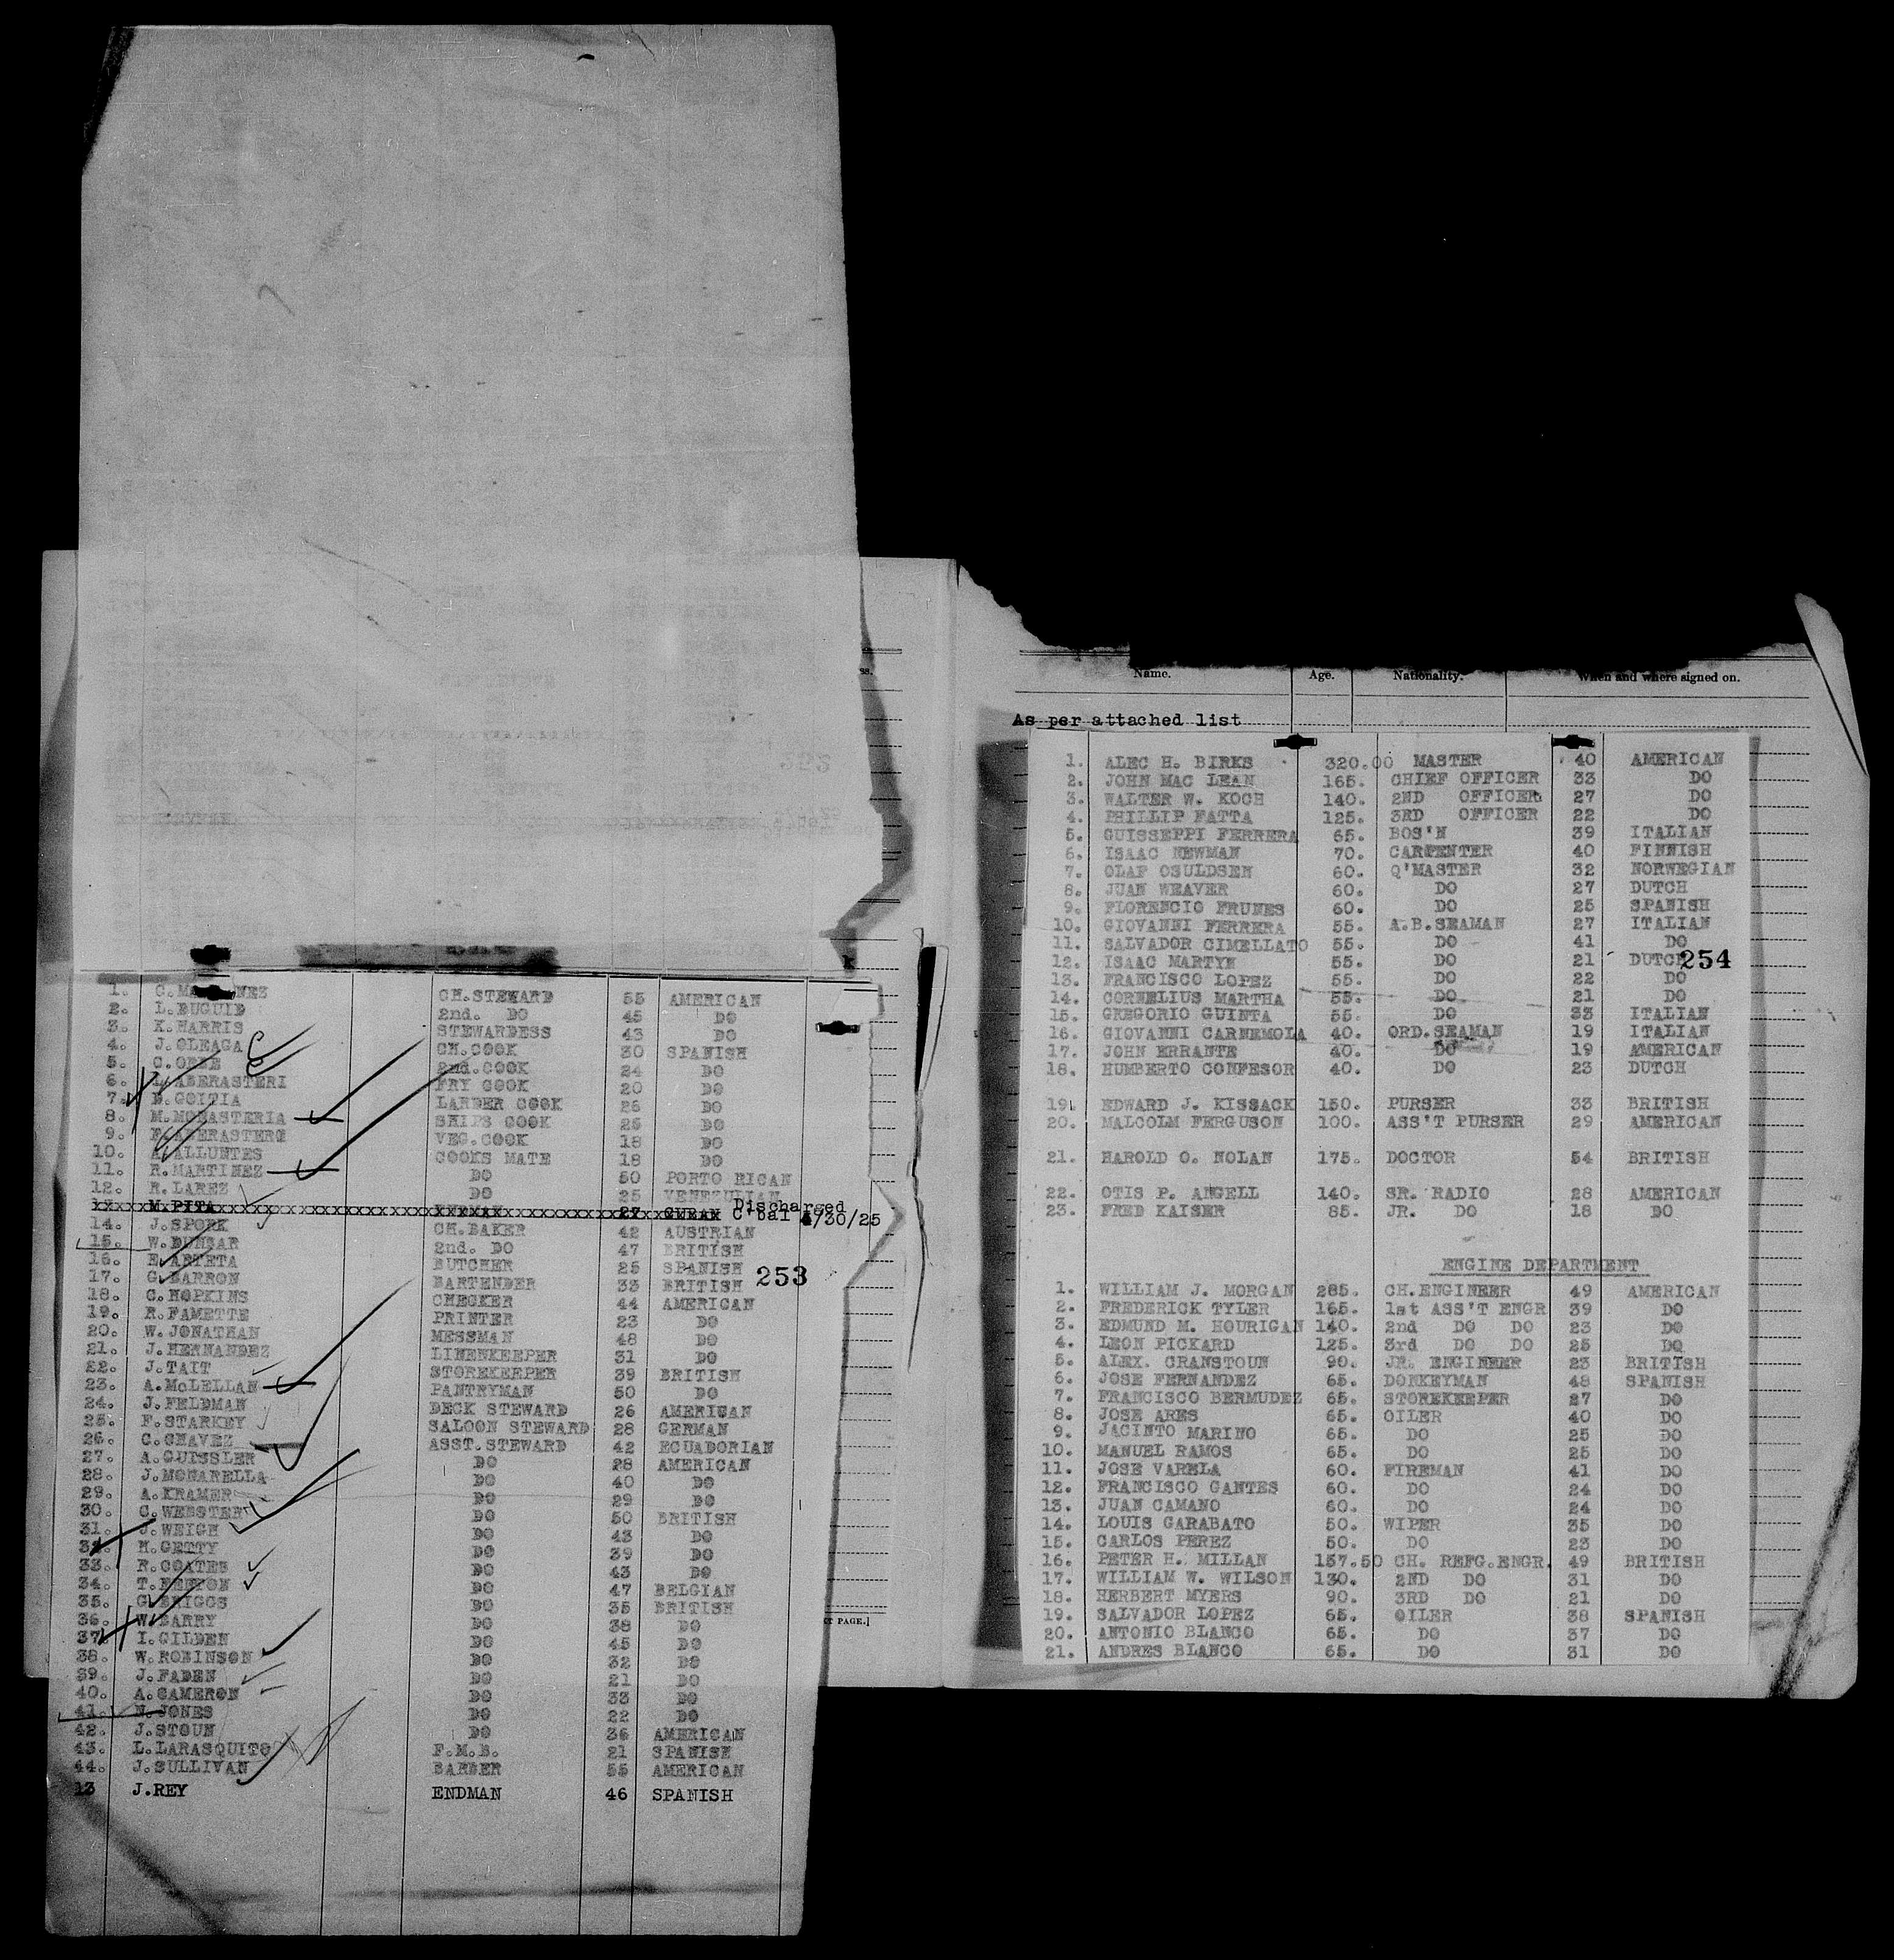 1. G. MA NEZ CH.STEWARD 55 AMERICAN
2. L.BUGUID 2nd. DO 45 DO
3. K.HARRIS STEWARDESS 43 DO
4. J.OLEAGA CH.COOK 30 SPANISH
5. C. 2nd.COOK 24 DO
6. L.ABERASTERI FRY COOK 20 DO
7. D.GOITIA LARDER COOK 26 DO
8. M.MONASTERIA SHIPS COOK 25 DO
9. F.ABERASTERO VEG.COOK 18 DO
10. A.ALLUNTES COOKS MATE 18 DO
11. R.MARTINEZ DO 50 PORTO RICAN
12. R.LAREZ DO 25 VENEZULIAN
13. M.PITA ENDMAN 27 CUBAN Discharged C'bal 4/30/25
14. J.SPORK CH.BAKER 42 AUSTRIAN
15. W.DUNSAR 2nd. DO 47 BRITISH
16. E.ARTETA BUTCHER 25 SPANISH
17. G.BARRON BARTENDER 33 BRITISH 253
18. C.HOPKINS CHECKER 44 AMERICAN
19. R.FAMETTE PRINTER 23 DO
20. W.JONATHAN MESSMAN 48 DO
21. J.HERNANDEZ LINENKEEPER 31 DO
22. J.TAIT STOREKEEPER 39 BRITISH
23. A.McLELLAN PANTRYMAN 50 DO
24. J.FELDMAN DECK STEWARD 26 AMERICAN
25. F.STARKEY SALOON STEWARD 28 GERMAN
26. C.CHAVEZ ASST.STEWARD 42 ECUADORIAN
27. A.GUISSLER DO 28 AMERICAN
28. J.MONARELLA DO 40 DO
29. A.KRAMER DO 29 DO
30. C.WEBSTER DO 50 BRITISH
31. J.WEIGH DO 43 DO
32. M.GETTY DO 39 DO
33. R.COATES DO 43 DO
34. T.NEWTON DO 47 BELGIAN
35. G.BRIGGS DO 35 BRITISH
36. W.BARRY DO 38 DO
37. I.GILDEN DO 45 DO
38. W.ROBINSON DO 32 DO
39. J.FADEN DO 21 DO
40. A.CAMERON DO 33 DO
41. N.JONES DO 22 DO
42. J.STOUN DO 36 AMERICAN
43. L.LARASQUITO F.M.B. 21 SPANISH
44. J.SULLIVAN BARBER 55 AMERICAN
13 J.REY ENDMAN 46 SPANISH
PAGE.]
Name. Age. Nationality. When and where signed on.
As per attached list
1. ALEC H. BIRKS 320.00 MASTER 40 AMERICAN
2. JOHN MAC LEAN 165. CHIEF OFFICER 33 DO
3. WALTER W. KOCH 140. 2ND OFFICER 27 DO
4. PHILLIP FATTA 125. 3RD OFFICER 22 DO
5. GUISSEPPI FERRERA 65. BOS'N 39 ITALIAN
6. ISAAC NEWMAN 70. CARPENTER 40 FINNISH
7. OLAF OSULDSEN 60. Q'MASTER 32 NORWEGIAN
8. JUAN WEAVER 60. DO 27 DUTCH
9. FLORENCIO FRUNES 60. DO 25 SPANISH
10. GIOVANNI FERRERA 55. A.B.SEAMAN 27 ITALIAN
11. SALVADOR CIMELLATO 55. DO 41 DO
12. ISAAC MARTYN 55. DO 21 DUTCH 254
13. FRANCISCO LOPEZ 55. DO 22 DO
14. CORNELIUS MARTHA 55. DO 21 DO
15. GREGORIO GUINTA 55. DO 33 ITALIAN
16. GIOVANNI CARNEMOLA 40. ORD.SEAMAN 19 ITALIAN
17. JOHN ERRANTE 40. DO 19 AMERICAN
18. HUMBERTO CONFESOR 40. DO 23 DUTCH
19. EDWARD J. KISSACK 150. PURSER 33 BRITISH
20. MALCOLM FERGUSON 100. ASS'T PURSER 29 AMERICAN
21. HAROLD O. NOLAN 175. DOCTOR 54 BRITISH
22. OTIS P. ANGELL 140. SR. RADIO 28 AMERICAN
23. FRED KAISER 85. JR. DO 18 DO
ENGINE DEPARTMENT
1. WILLIAM J. MORGAN 285. CH.ENGINEER 49 AMERICAN
2. FREDERICK TYLER 165. 1st ASS'T ENGR 39 DO
3. EDMUND M. HOURIGAN 140. 2nd DO DO 23 DO
4. LEON PICKARD 125. 3rd DO DO 25 DO
5. ALEX. CRANSTOUN 90. JR. ENGINEER 23 BRITISH
6. JOSE FERNANDEZ 65. DONKEYMAN 48 SPANISH
7. FRANCISCO BERMUDEZ 65. STOREKEEPER 27 DO
8. JOSE ARES 65. OILER 40 DO
9. JACINTO MARINO 65. DO 25 DO
10. MANUEL RAMOS 65. DO 25 DO
11. JOSE VARELA 60. FIREMAN 41 DO
12. FRANCISCO GANTES 60. DO 24 DO
13. JUAN CAMANO 60. DO 24 DO
14. LOUIS GARABATO 50. WIPER 35 DO
15. CARLOS PEREZ 50. DO 23 DO
16. PETER H. MILLAN 157.50 CH. REFG.ENGR. 49 BRITISH
17. WILLIAM W. WILSON 130. 2ND DO 31 DO
18. HERBERT MYERS 90. 3RD DO 21 DO
19. SALVADOR LOPEZ 65. OILER 38 SPANISH
20. ANTONIO BLANCO 65. DO 37 DO
21. ANDRES BLANCO 65. DO 31 DO